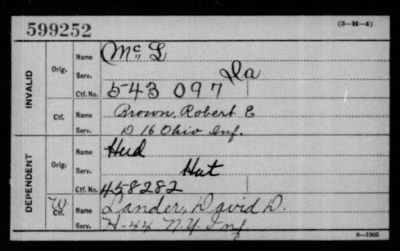 599252
(3-H-4)
INVALID
Orig.
Name McL
Serv. Ia
Ctf. No. 543 097
Ctf.
Name Brown, Robert E
Serv. D 16 Ohio Inf.
DEPENDENT
Orig.
Name Hud
Serv. Hut
Ctf. No. 458282
W
Ctf.
Name Lander, David D.
Serv. H-44 N.Y. Inf